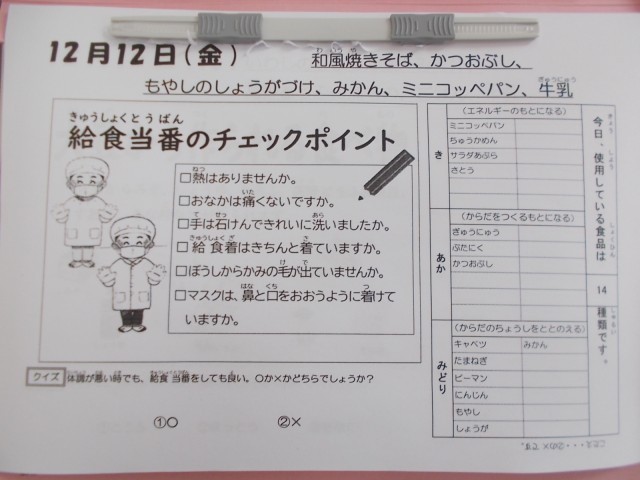 12月12日(金)
和風焼きそば、かつおぶし、
もやしのしょうがづけ、みかん、ミニコッペパン、牛乳
給食当番のチェックポイント
□熱はありませんか。
□おなかは痛くないですか。
□手は石けんできれいに洗いましたか。
□給食着はきちんと着ていますか。
□ぼうしからかみの毛が出ていませんか。
□マスクは、鼻と口をおおうように着けて
いますか。
クイズ 体調が悪い時でも、給食当番をしても良い。○か×かどちらでしょうか?
①○ ②×
き
(エネルギーのもとになる)
ミニコッペパン
ちゅうかめん
サラダあぶら
さとう
あか
(からだをつくるもとになる)
ぎゅうにゅう
ぶたにく
かつおぶし
みどり
(からだのちょうしをととのえる)
キャベツ みかん
たまねぎ
ピーマン
にんじん
もやし
しょうが
今日、使用している食品は
14
種類です。
こたえ・・・②の×です。